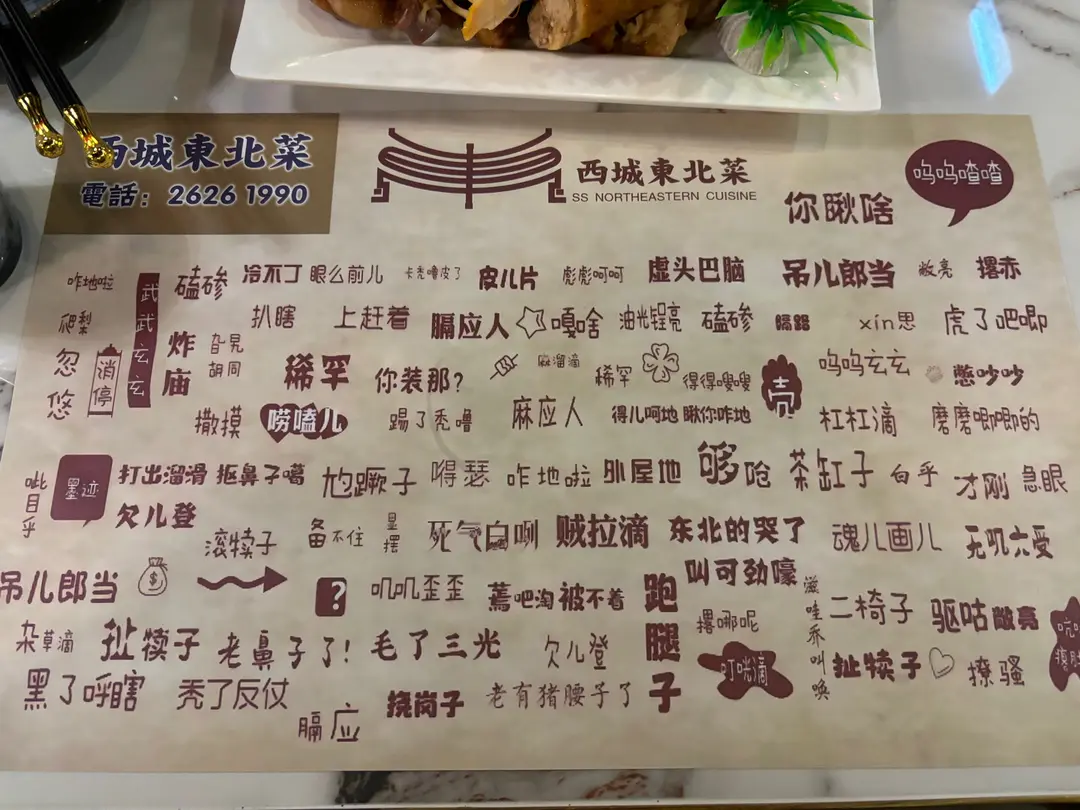 西城東北菜
電話：2626 1990
西城東北菜
SS NORTHEASTERN CUISINE
你瞅啥
呜呜喳喳
咋地啦
武武玄玄
磕碜
冷不丁
眼么前儿
卡秃噜皮了
皮儿片
彪彪呵呵
虚头巴脑
吊儿郎当
敞亮
撂赤
爬犁
扒瞎
上赶着
膈应人
嘎啥
油光锃亮
磕碜
隔路
xín思
虎了吧唧
忽悠
消停
炸庙
旮旯胡同
稀罕
你装那?
麻溜滴
稀罕
得得嗖嗖
壳
呜呜玄玄
憋吵吵
撒摸
唠嗑儿
踢了秃噜
麻应人
得儿呵地
瞅你咋地
杠杠滴
磨磨唧唧的
呲目乎
墨迹
打出溜滑
抠鼻子噶
尥蹶子
嘚瑟
咋地啦
外屋地
够呛
茶缸子
白乎
才刚
急眼
欠儿登
滚犊子
备不住
显摆
死气白咧
贼拉滴
东北的哭了
魂儿画儿
无叽六受
吊儿郎当
?
叽叽歪歪
蔫吧淘
被不着
跑腿子
叫可劲嚎
撂哪呢
滋哇乔叫唤
二椅子
驱咕
敞亮
杂草滴
扯犊子
老鼻子了!
毛了三光
欠儿登
叮咣滴
扯犊子
撩骚
黑了呼瞎
秃了反仗
膈应
挠岗子
老有猪腰子了